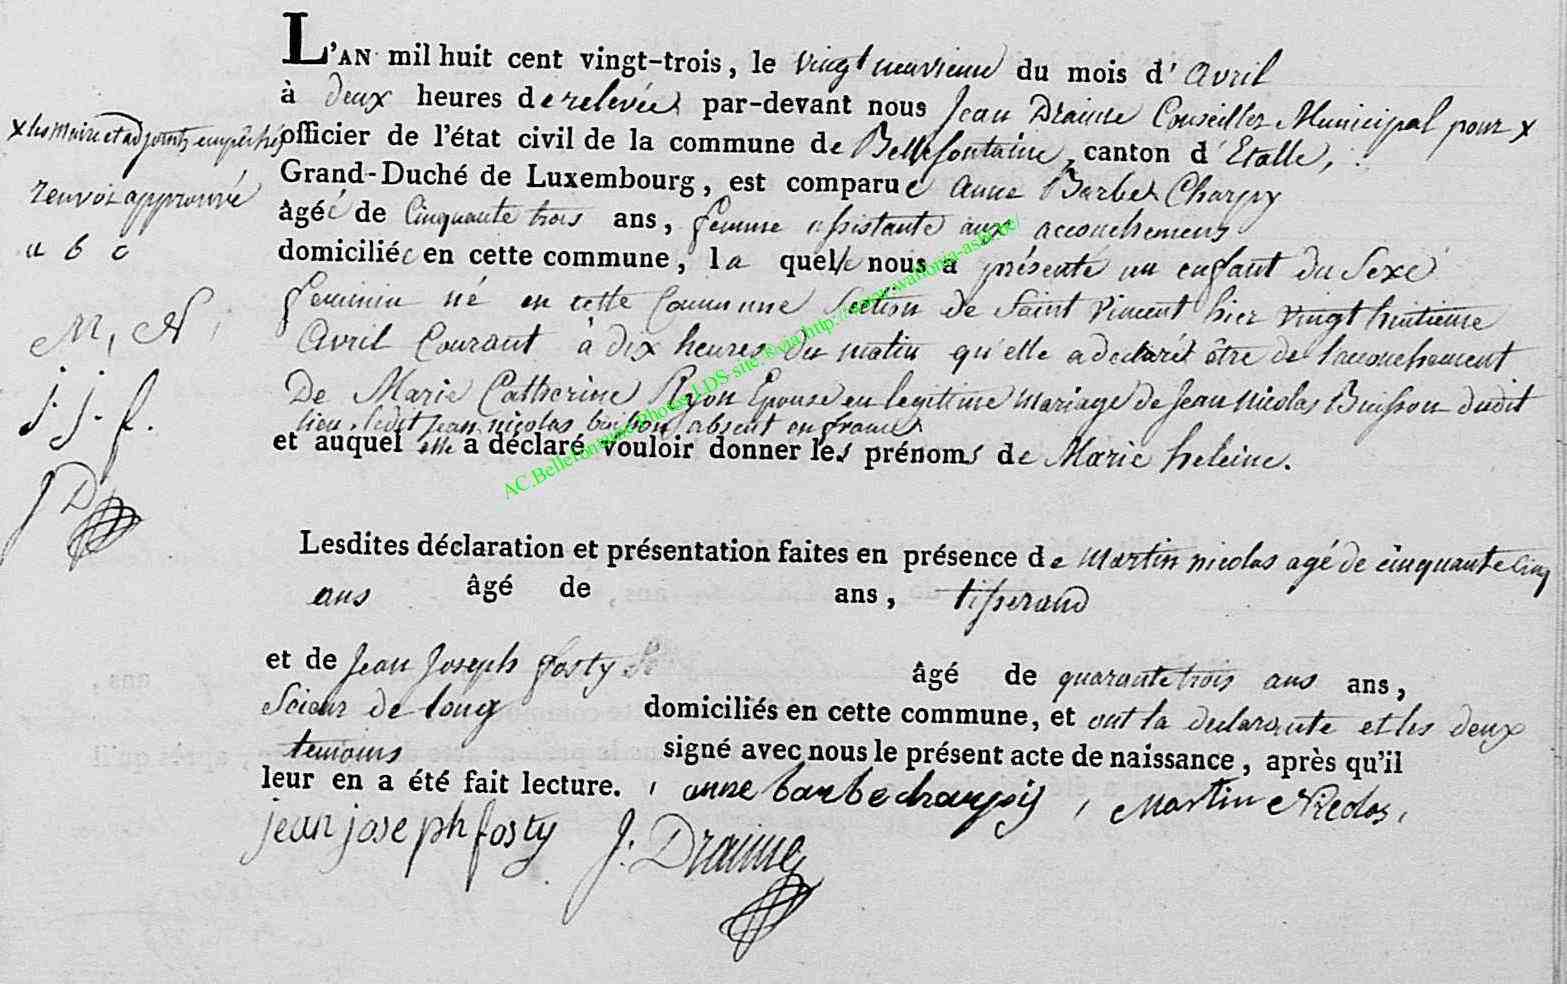 L'AN mil huit cent vingt-trois, le vingt neuvieme du mois d' avril
à deux heures de relevée par-devant nous Jean Draime Conseiller Municipal pour x
x les maire et adjoints empêchés
officier de l'état civil de la commune de Bellefontaine, canton d'Etalle,
Grand-Duché de Luxembourg, est comparue anne Barbe Charpy
renvoi approuvé
âgée de Cinquante trois ans, femme assistante aux accouchemens
a b c
domiciliée en cette commune, la quelle nous a présenté un enfant du Sexe
feminin né en cette Commune Section de Saint Vincent hier vingt huitieme
M, N,
Avril Courant à dix heures du matin qu'elle a declaré être de l'accouchement
De Marie Catherine Ryon Epouse en legitime mariage de Jean Nicolas Buisson dudit
j. j. f.
lieu, ledit jean nicolas buisson absent en france
et auquel elle a déclaré vouloir donner les prénoms de Marie heleine.
J D
Lesdites déclaration et présentation faites en présence de Martin nicolas agé de cinquante cinq
ans âgé de ans, tisserand
et de Jean Joseph fosty âgé de quarante trois ans ans,
Scieur de long domiciliés en cette commune, et ont la declarante et les deux
temoins signé avec nous le présent acte de naissance, après qu'il
leur en a été fait lecture. anne barbe charpiy, Martin Nicolas,
jean joseph fosty J. Draime
AC.Bellefontaine